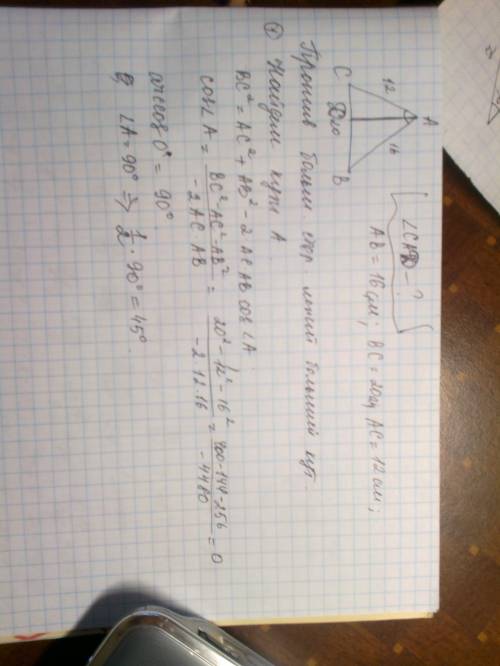 A
12
16
C
20
B
∠CAD - ?
AB = 16 см; BC = 20 см AC = 12 см;
Против больш стор лежит больший кут
① Найдем кут A
BC² = AC² + AB² - 2 AC AB cos∠A
cos∠A = (BC² - AC² - AB²) / (-2 AC AB) = (20² - 12² - 16²) / (-2 · 12 · 16) = (400 - 144 - 256) / (-4480) = 0
arccos 0° = 90°
∠A = 90° ⇒ 1/2 · 90° = 45°